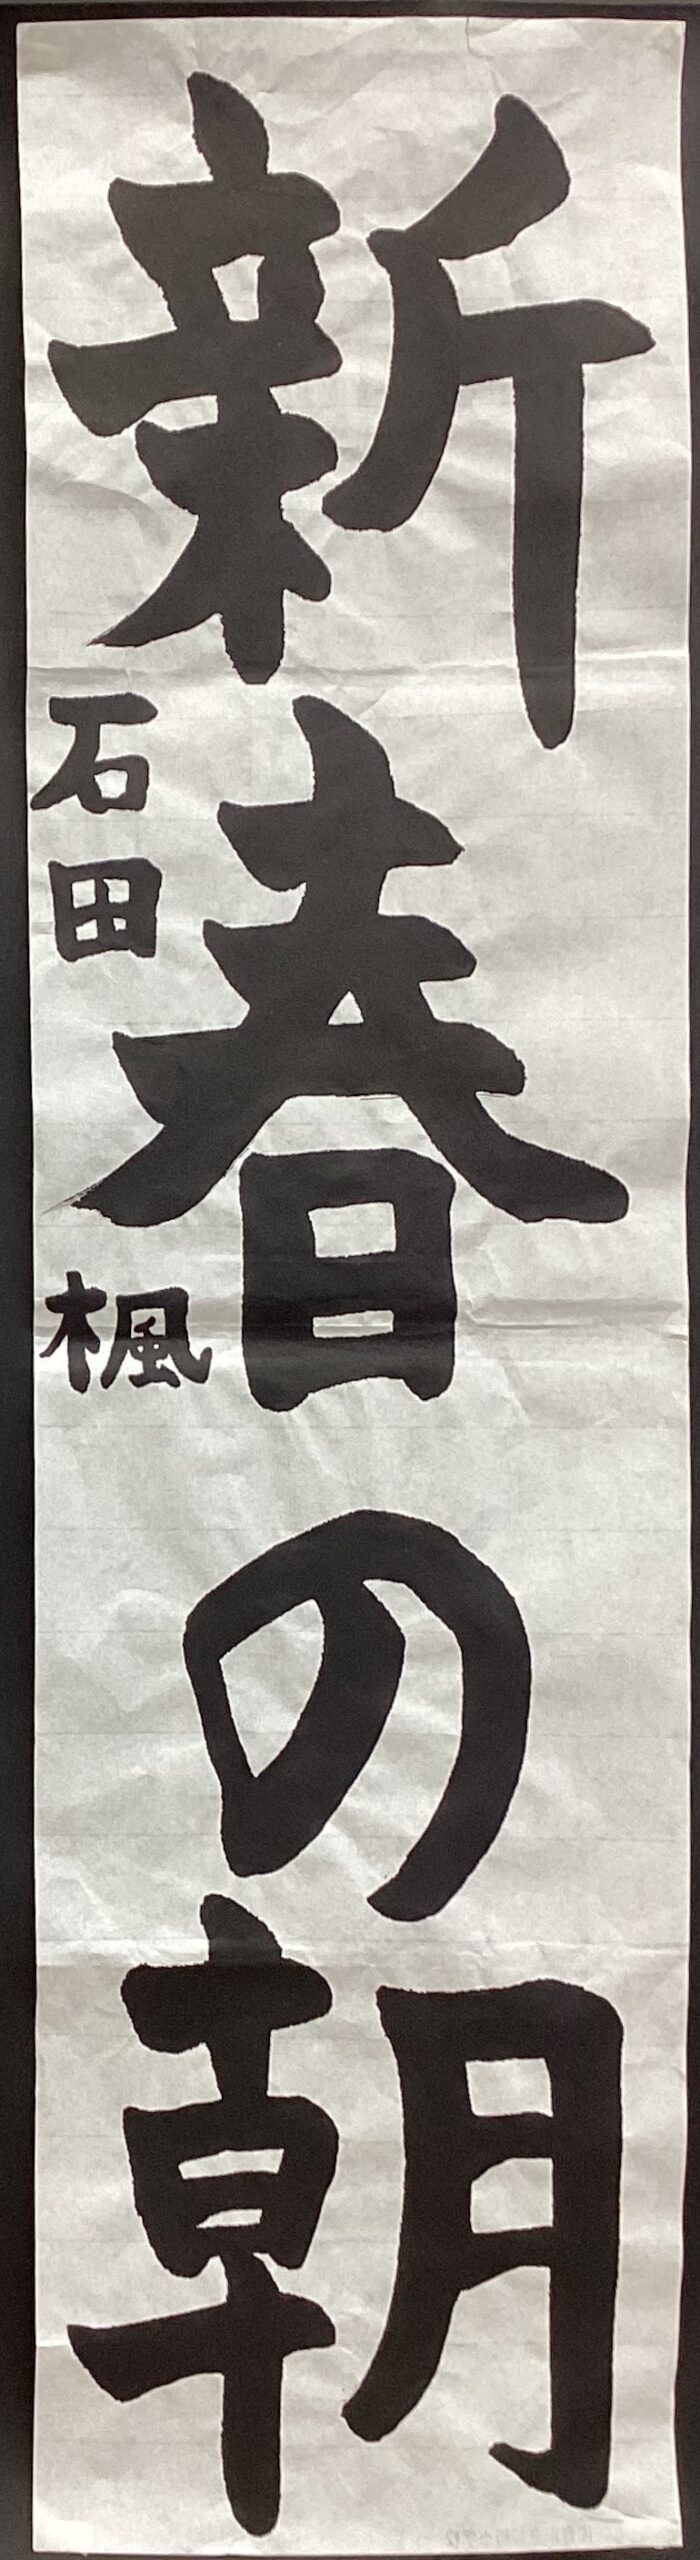 新春の朝
石田楓